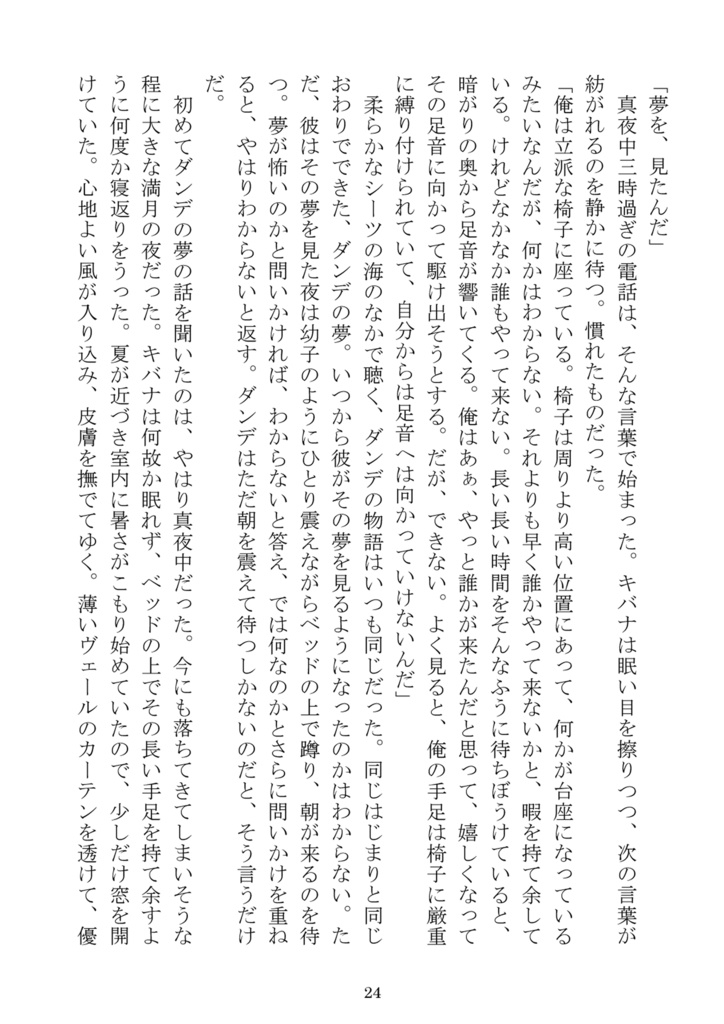 「夢を、見たんだ」
　真夜中三時過ぎの電話は、そんな言葉で始まった。キバナは眠い目を擦りつつ、次の言葉が
紡がれるのを静かに待つ。慣れたものだった。
「俺は立派な椅子に座っている。椅子は周りより高い位置にあって、何かが台座になっている
みたいなんだが、何かはわからない。それよりも早く誰かやって来ないかと、暇を持て余して
いる。けれどなかなか誰もやって来ない。長い長い時間をそんなふうに待ちぼうけていると、
暗がりの奥から足音が響いてくる。俺はあぁ、やっと誰かが来たんだと思って、嬉しくなって
その足音に向かって駆け出そうとする。だが、できない。よく見ると、俺の手足は椅子に厳重
に縛り付けられていて、自分からは足音へは向かっていけないんだ」
　柔らかなシーツの海のなかで聴く、ダンデの物語はいつも同じだった。同じはじまりと同じ
おわりでできた、ダンデの夢。いつから彼がその夢を見るようになったのかはわからない。た
だ、彼はその夢を見た夜は幼子のようにひとり震えながらベッドの上で蹲り、朝が来るのを待
つ。夢が怖いのかと問いかければ、わからないと答え、では何なのかとさらに問いかけを重ね
ると、やはりわからないと返す。ダンデはただ朝を震えて待つしかないのだと、そう言うだけ
だ。
　初めてダンデの夢の話を聞いたのは、やはり真夜中だった。今にも落ちてきてしまいそうな
程に大きな満月の夜だった。キバナは何故か眠れず、ベッドの上でその長い手足を持て余すよ
うに何度か寝返りをうった。夏が近づき室内に暑さがこもり始めていたので、少しだけ窓を開
けていた。心地よい風が入り込み、皮膚を撫でてゆく。薄いヴェールのカーテンを透けて、優
24